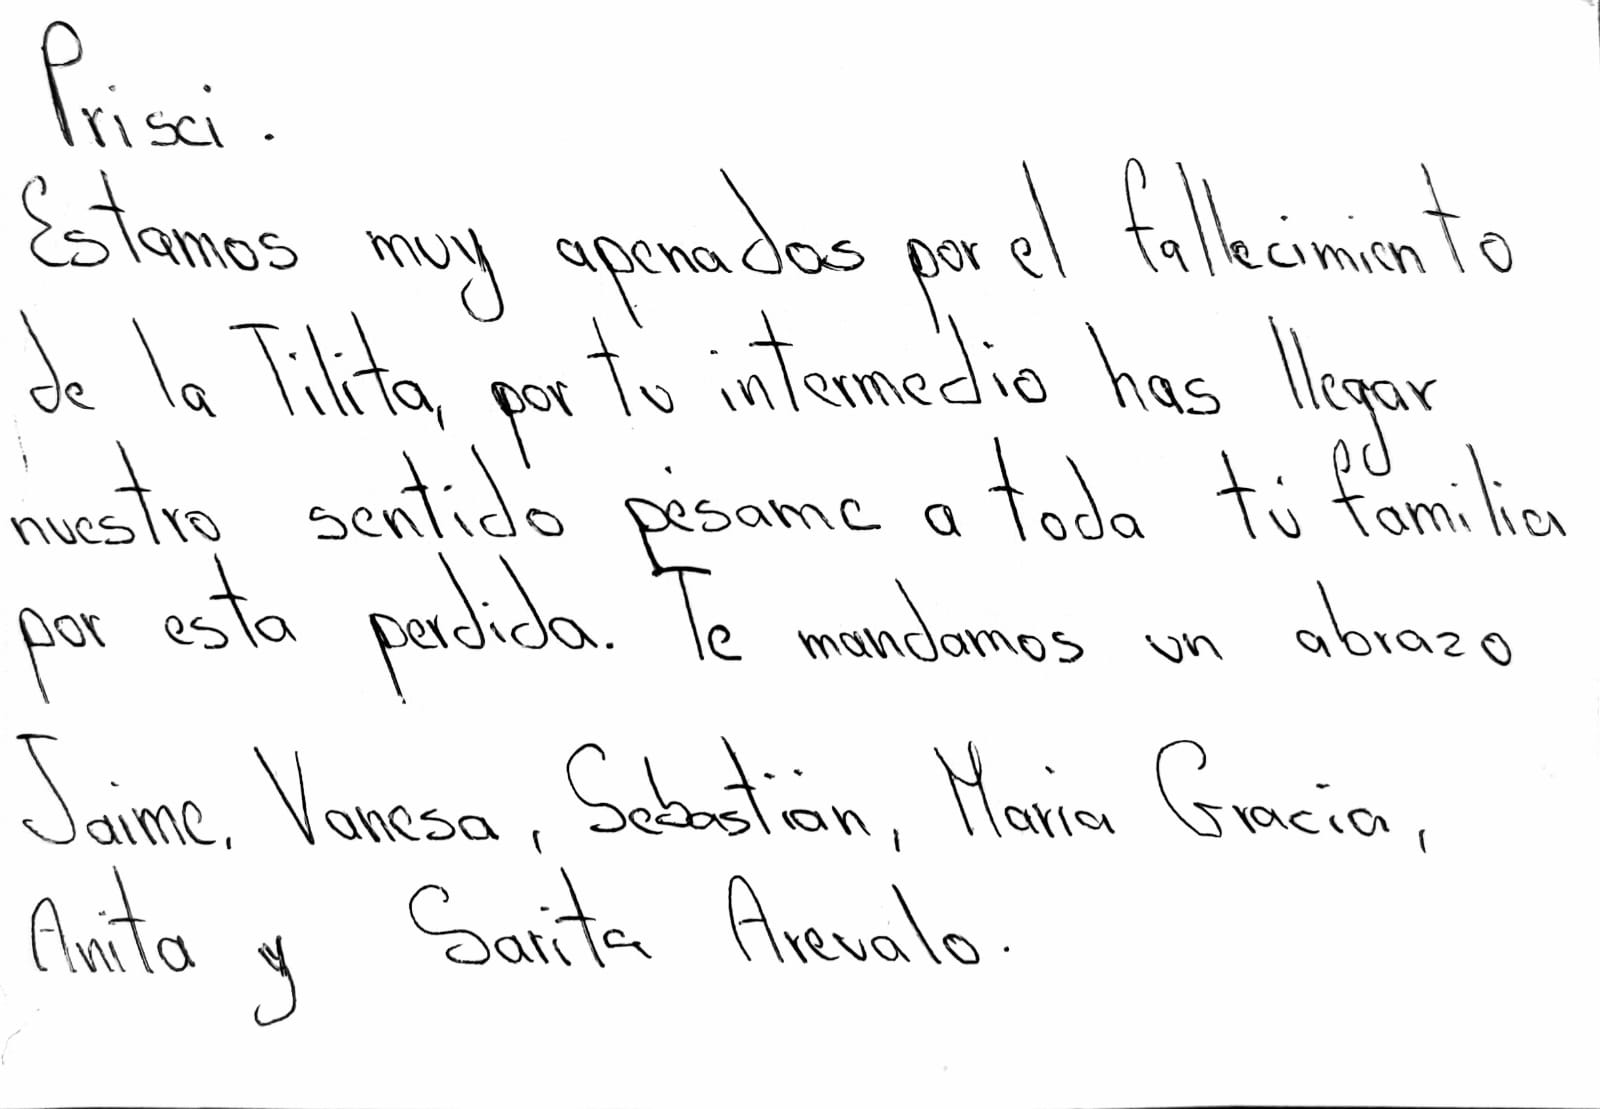 Prisci.
Estamos muy apenados por el fallecimiento
de la Tilita, por tu intermedio has llegar
nuestro sentido pésame a toda tú familia
por esta perdida. Te mandamos un abrazo
Jaime, Vanesa, Sebastián, María Gracia,
Anita y Sarita Arevalo.